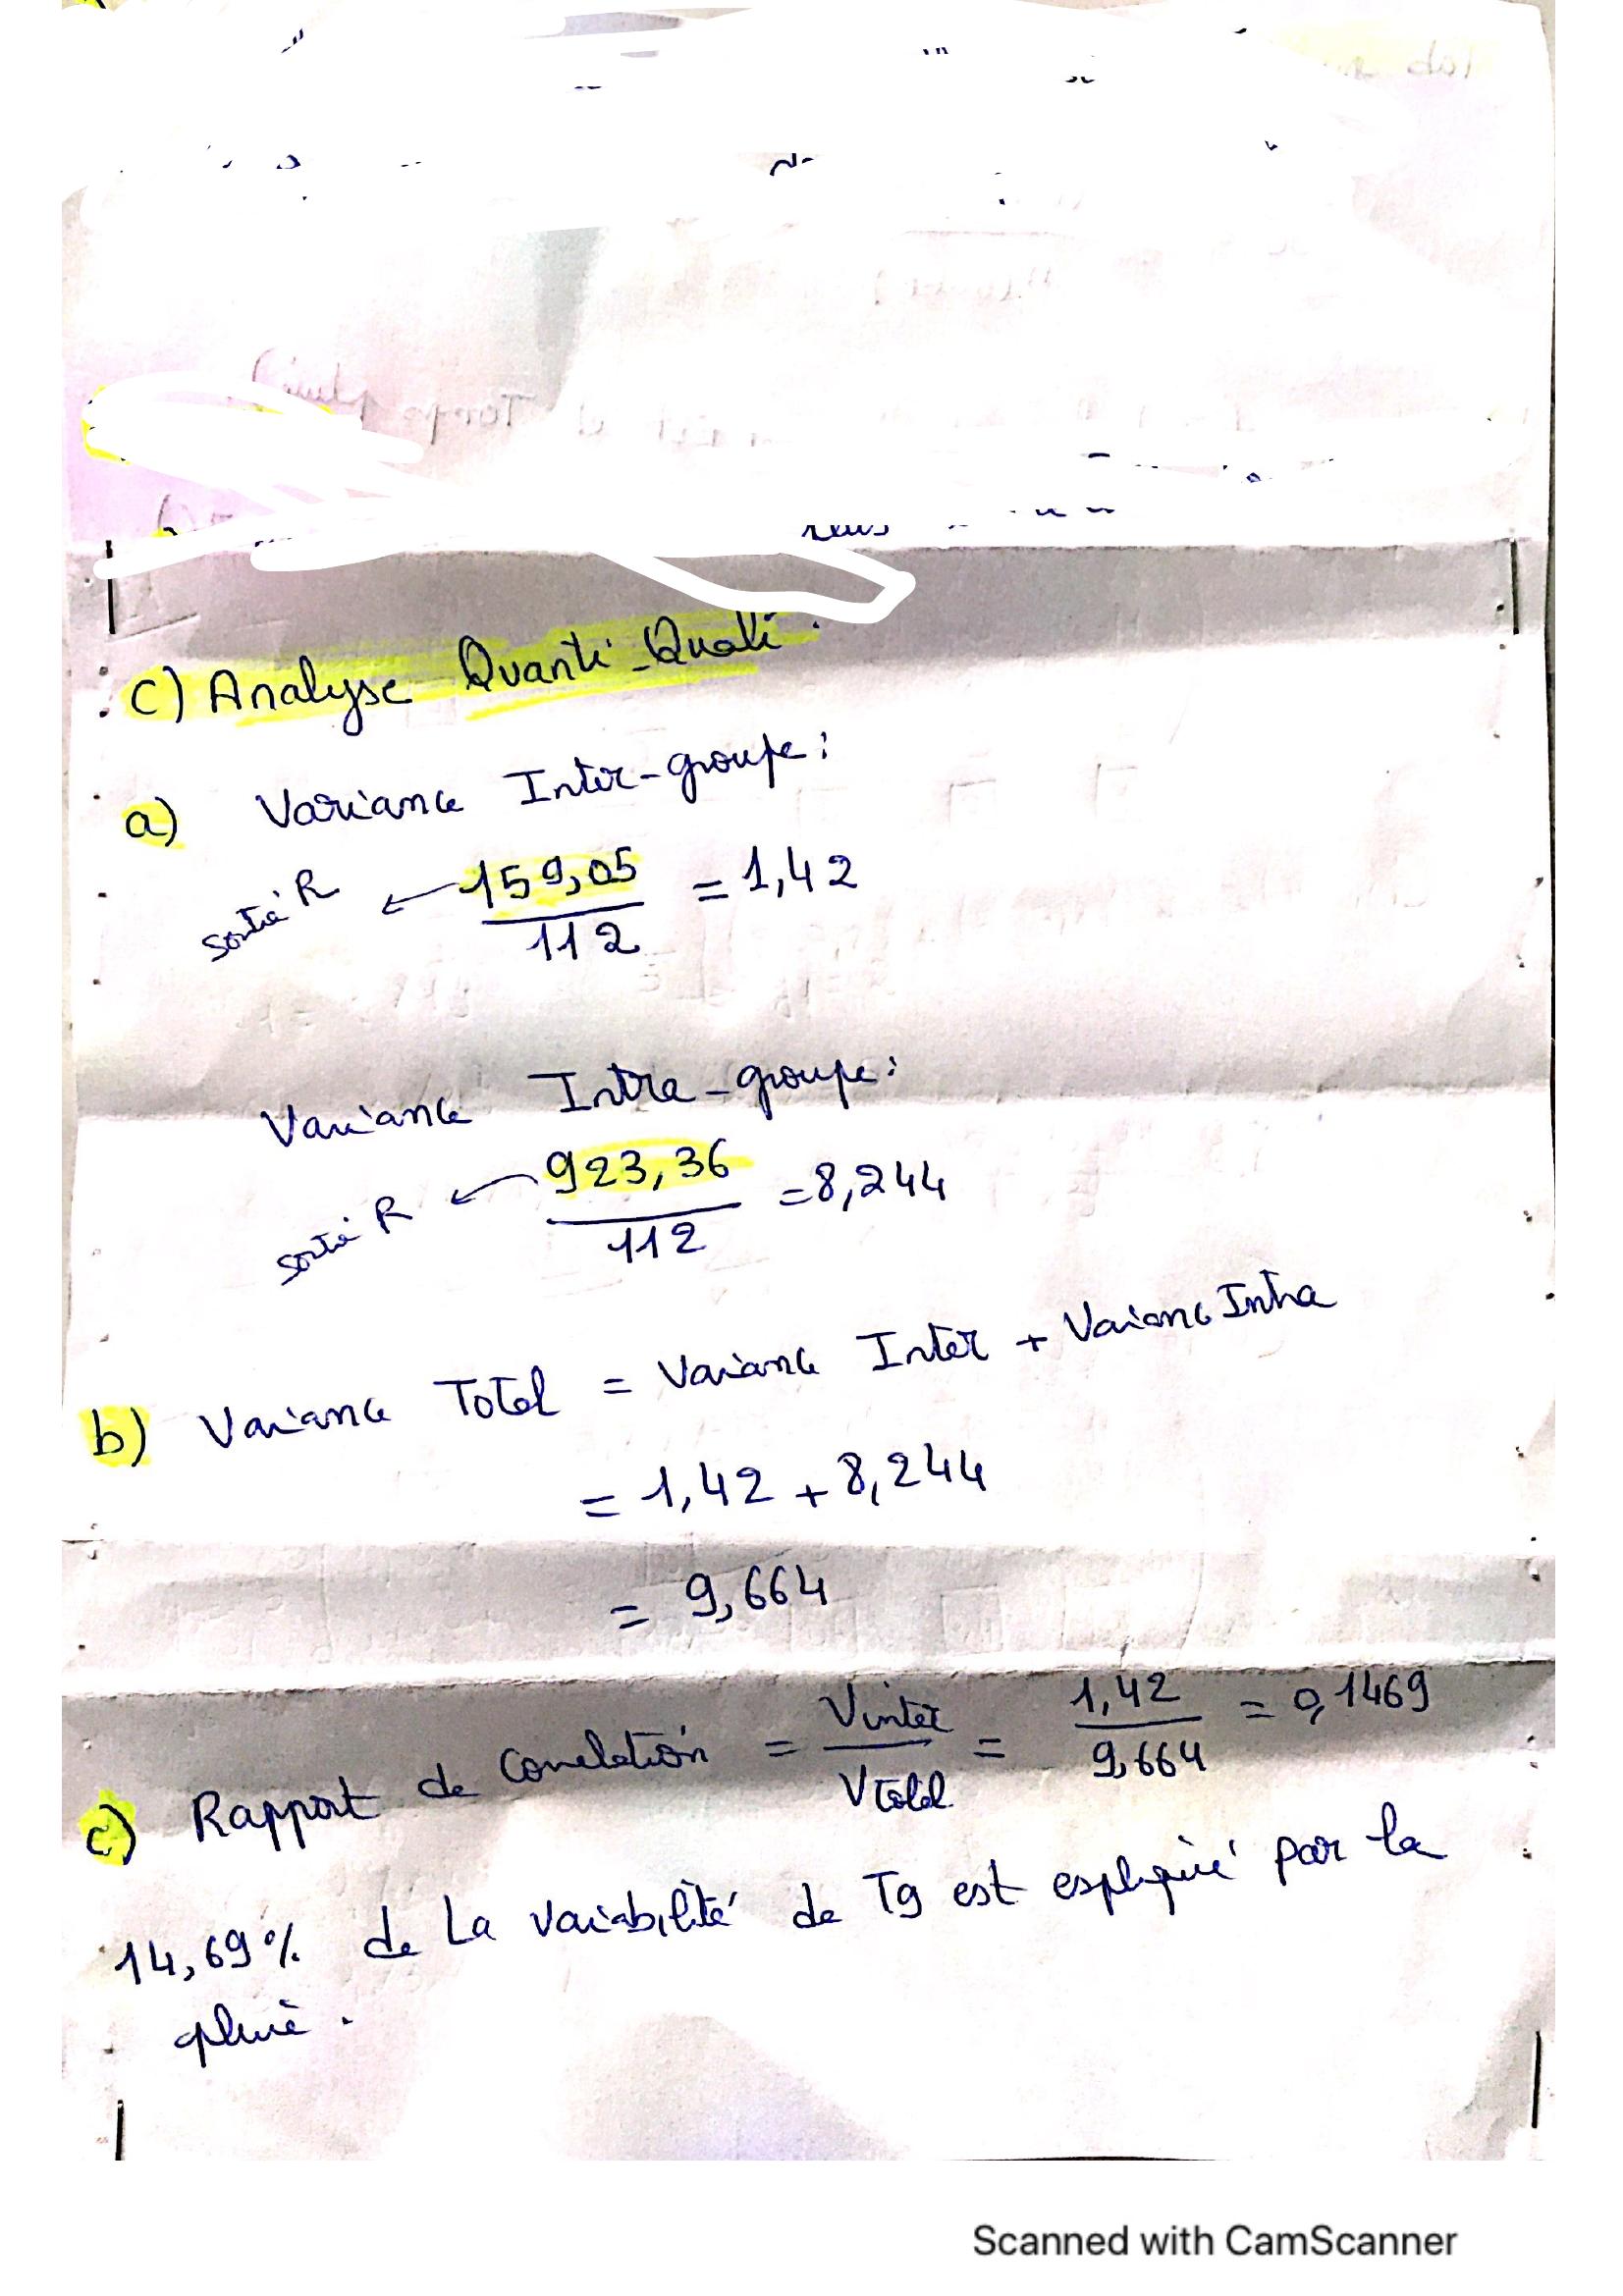 C) Analyse Quanti-Quali
a) Variance Inter-groupe:
sortie R ← 159,05 / 112 = 1,42
Variance Intra-groupe:
sortie R ← 923,36 / 112 = 8,244
b) Variance Total = Variance Inter + Variance Intra
= 1,42 + 8,244
= 9,664
c) Rapport de correlation = Vinter / Vtotal = 1,42 / 9,664 = 0,1469
14,69% de La variabilité de T9 est expliqué par la
pluie.
Scanned with CamScanner